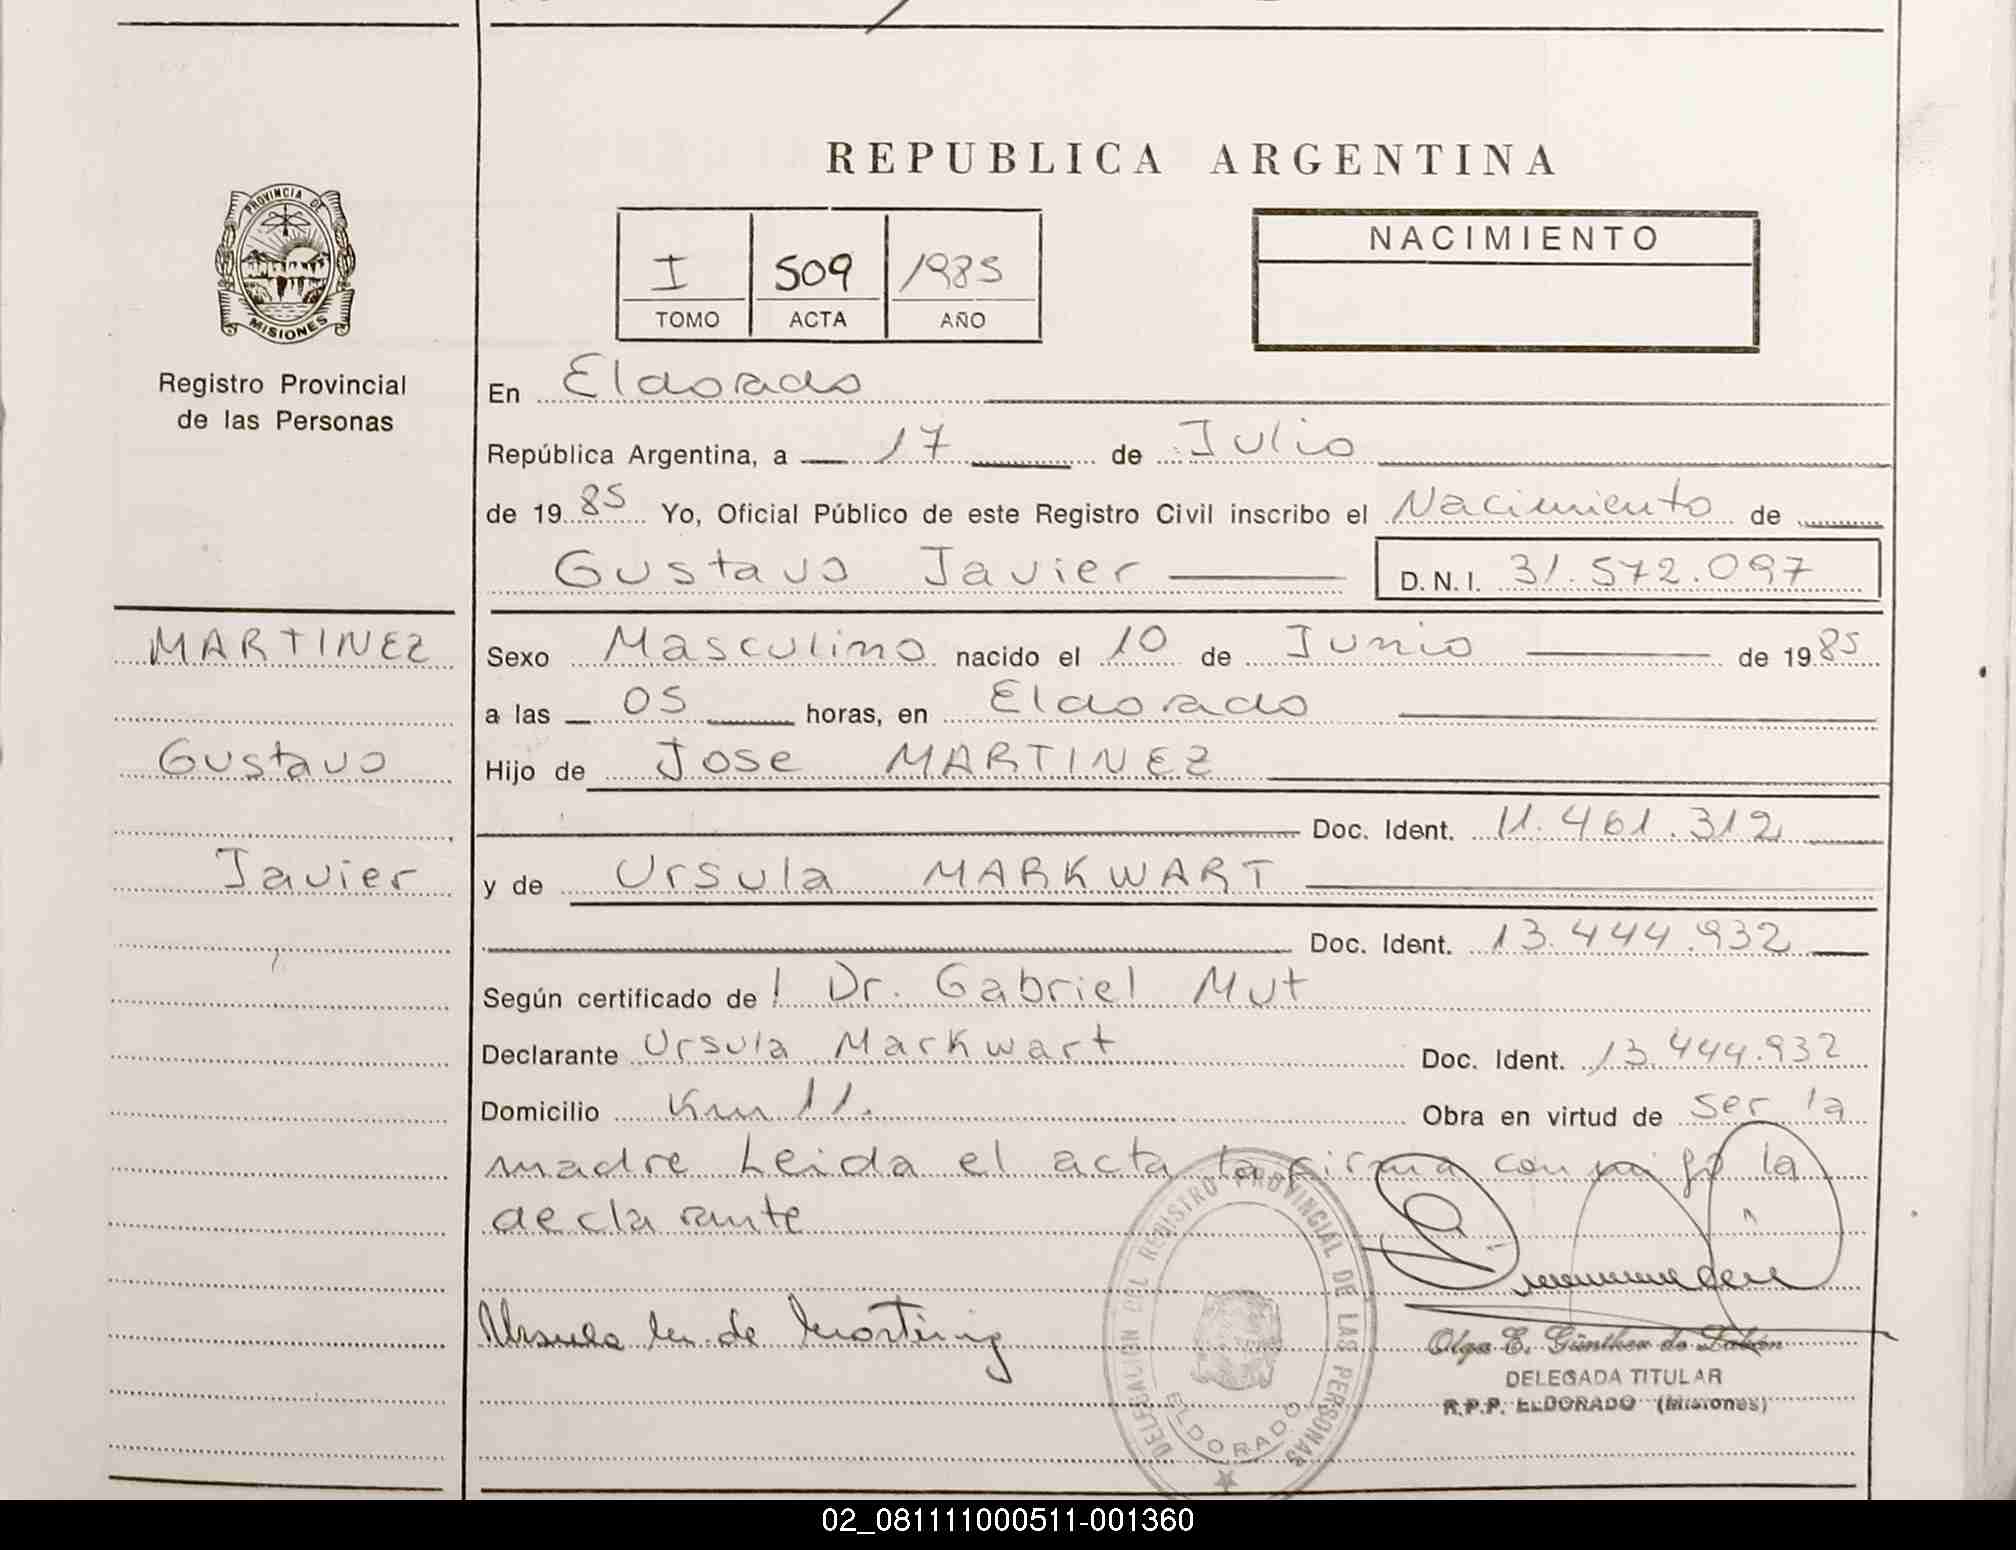 REPUBLICA ARGENTINA
PROVINCIA DE
MISIONES
Registro Provincial
de las Personas
I 509 1985
TOMO ACTA AÑO
NACIMIENTO
En Eldorado
República Argentina, a 17 de Julio
de 1985 Yo, Oficial Público de este Registro Civil inscribo el Nacimiento de
Gustavo Javier D.N.I. 31.572.097
MARTINEZ
Gustavo
Javier
Sexo Masculino nacido el 10 de Junio de 1985
a las 05 horas, en Eldorado
Hijo de Jose MARTINEZ
Doc. Ident. 11.461.312
y de Ursula MARKWART
Doc. Ident. 13.444.932
Según certificado de Dr. Gabriel Mut
Declarante Ursula Markwart Doc. Ident. 13.444.932
Domicilio Km 11. Obra en virtud de ser la
madre Leida el acta la firma conmigo la
declarante
Ursula M. de
DELEGACION DEL REGISTRO PROVINCIAL DE LAS PERSONAS
ELDORADO
Olga E. Günther de
DELEGADA TITULAR
R.P.P. ELDORADO (Misiones)
02_081111000511-001360